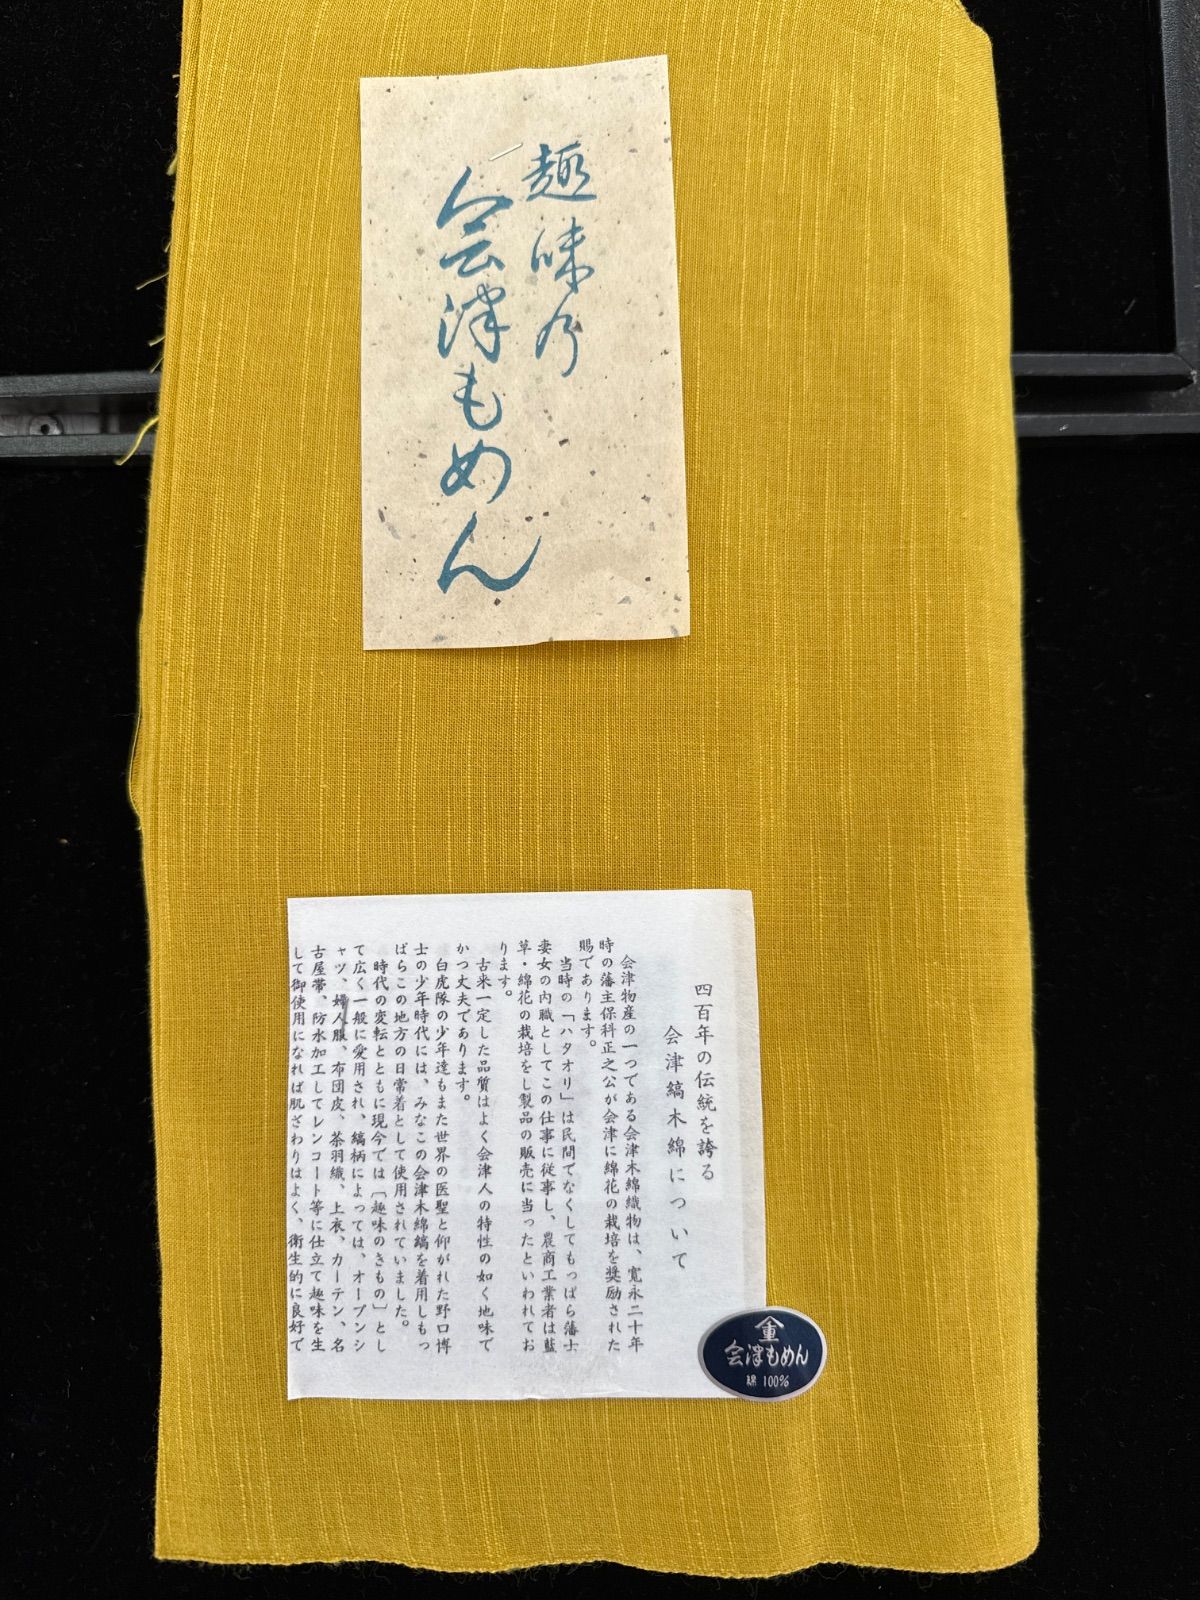 趣味乃
会津もめん
四百年の伝統を誇る
会津縞木綿について
会津物産の一つである会津木綿織物は、寛永二十年
時の藩主保科正之公が会津に綿花の栽培を奨励された
賜であります。
当時の「ハタオリ」は民間でなくしてもっぱら藩士
妻女の内職としてこの仕事に従事し、農商工業者は藍
草・綿花の栽培をし製品の販売に当ったといわれてお
ります。
古来一定した品質はよく会津人の特性の如く地味で
かつ丈夫であります。
白虎隊の少年達もまた世界の医聖と仰がれた野口博
士の少年時代には、みなこの会津木綿縞を着用しもっ
ぱらこの地方の日常着として使用されていました。
時代の変転とともに現今では〔趣味のきもの〕とし
て広く一般に愛用され、縞柄によっては、オープンシ
ャツ、婦人服、布団皮、茶羽織、上衣、カーテン、名
古屋帯、防水加工してレンコート等に仕立て趣味を生
して御使用になれば肌ざわりはよく、衛生的に良好で
重
会津もめん
綿 100%